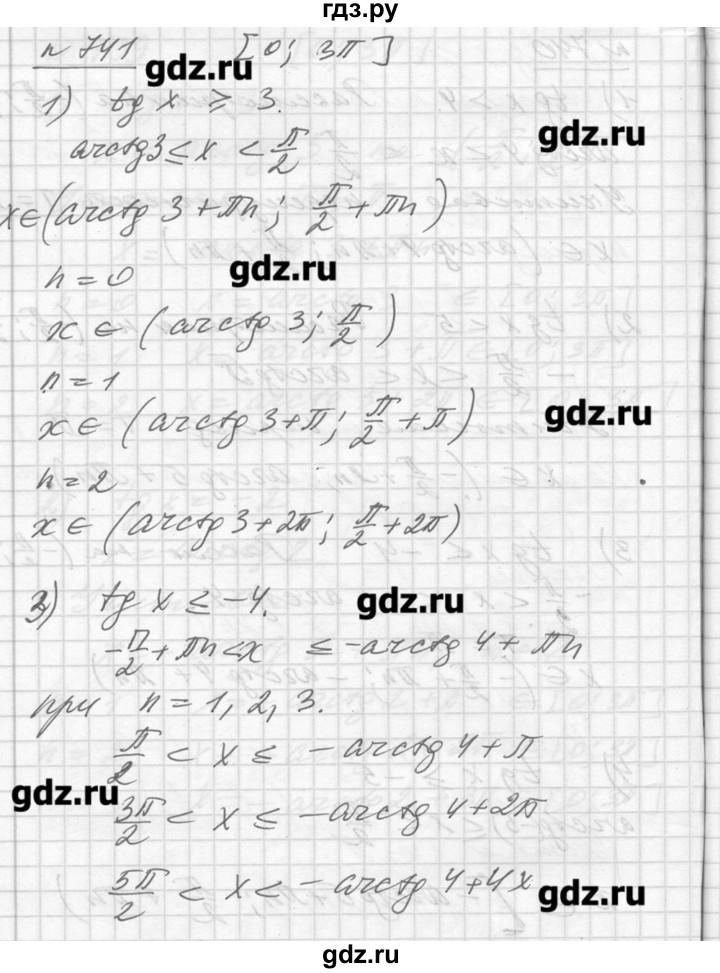 гдз.рф
n 741 [0; 3π]
gdz.ru
1) tg x ≥ 3.
gdz.ru
arctg3 ≤ x < π/2
x ∈ (arctg 3 + πn; π/2 + πn)
n = 0
gdz.ru
x ∈ (arctg 3; π/2)
n = 1
gdz.ru
x ∈ (arctg 3 + π; π/2 + π)
n = 2
x ∈ (arctg 3 + 2π; π/2 + 2π)
3) tg x ≤ -4.
gdz.ru
-π/2 + πn < x ≤ -arctg 4 + πn
при n = 1, 2, 3.
π/2 < x ≤ -arctg 4 + π
gdz.ru
3π/2 < x ≤ -arctg 4 + 2π
5π/2 < x < -arctg 4 + 4x
gdz.ru
gdz.ru